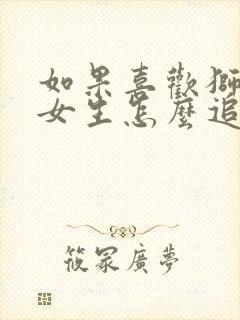 如果喜歡獅
女生怎麼追
筱冢廣夢